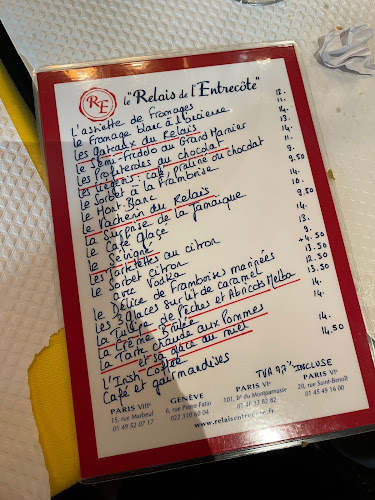 RE le "Relais de l'Entrecôte"
L'assiette de fromages 12.
Le fromage blanc à l'ancienne 11.
Les gâteaux du Relais 14.
Le Semi-freddo au Grand Marnier 11.
Les Profiteroles au chocolat 13.
Les Liégeois : café, praliné ou chocolat 14.
Le Sorbet à la Framboise 11.
Le Mont-Blanc 9.
Le Vacherin du Relais 9.50
La Surprise de la Jamaïque 14.
Le Café Glacé 10.
Le Sévigné 9.50
Les Tartelettes au citron 14.
Le Sorbet citron 13.
avec Vodka 9.
Le Délice de Framboises marinées + 4.50
Les 3 glaces sur lit de caramel 13.50
La Tulipe de Pêches et Abricots Melba 12.50
La Crème Brûlée 13.50
La Tarte chaude aux Pommes 14.
et sa glace au miel 14.
L'Irish Coffee 14.
Café et gourmandises 14,50
TVA INCLUSE
PARIS VIIIᵉ
15, rue Marbeuf
01 49 52 07 17
GENÈVE
6, rue Pierre Fatio
022 310 60 04
PARIS VIᵉ
101, Bᵈ du Montparnasse
01 46 33 82 82
PARIS VIᵉ
20, rue Saint-Benoît
01 45 49 16 00
www.relaisentrecote.fr